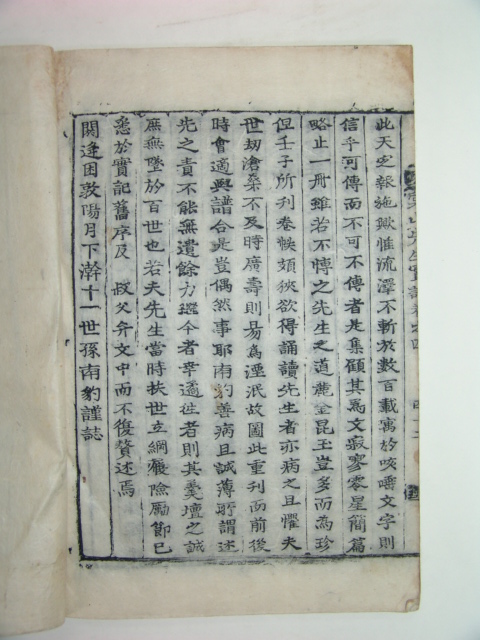 此天之報施歟惟流澤不斬於數百載寓於咳唾文字則
信乎可傳而不可不傳者是集顧其爲文寂寥零星簡篇
略止一冊雖若不愽之先生之道麗金昆玉豈多而為珍
但壬子所刊卷帙頗狹欲得誦讀先生者亦病之且懼夫
世刼滄桑不及時廣壽則易為湮泯故圖此重刊而前後
時會適與譜合是豈偶然事耶南豹善病且誠薄所謂述
先之責不能無遺餘力繼今者幸適徃者則其羹墻之誠
庶無墜於百世也若夫先生當時扶世立綱礪險勵節已
悉於實記舊序及 政父弁文中而不復贅述焉
閼逢困敦陽月下澣十一世孫南豹謹誌
先生實記卷之四